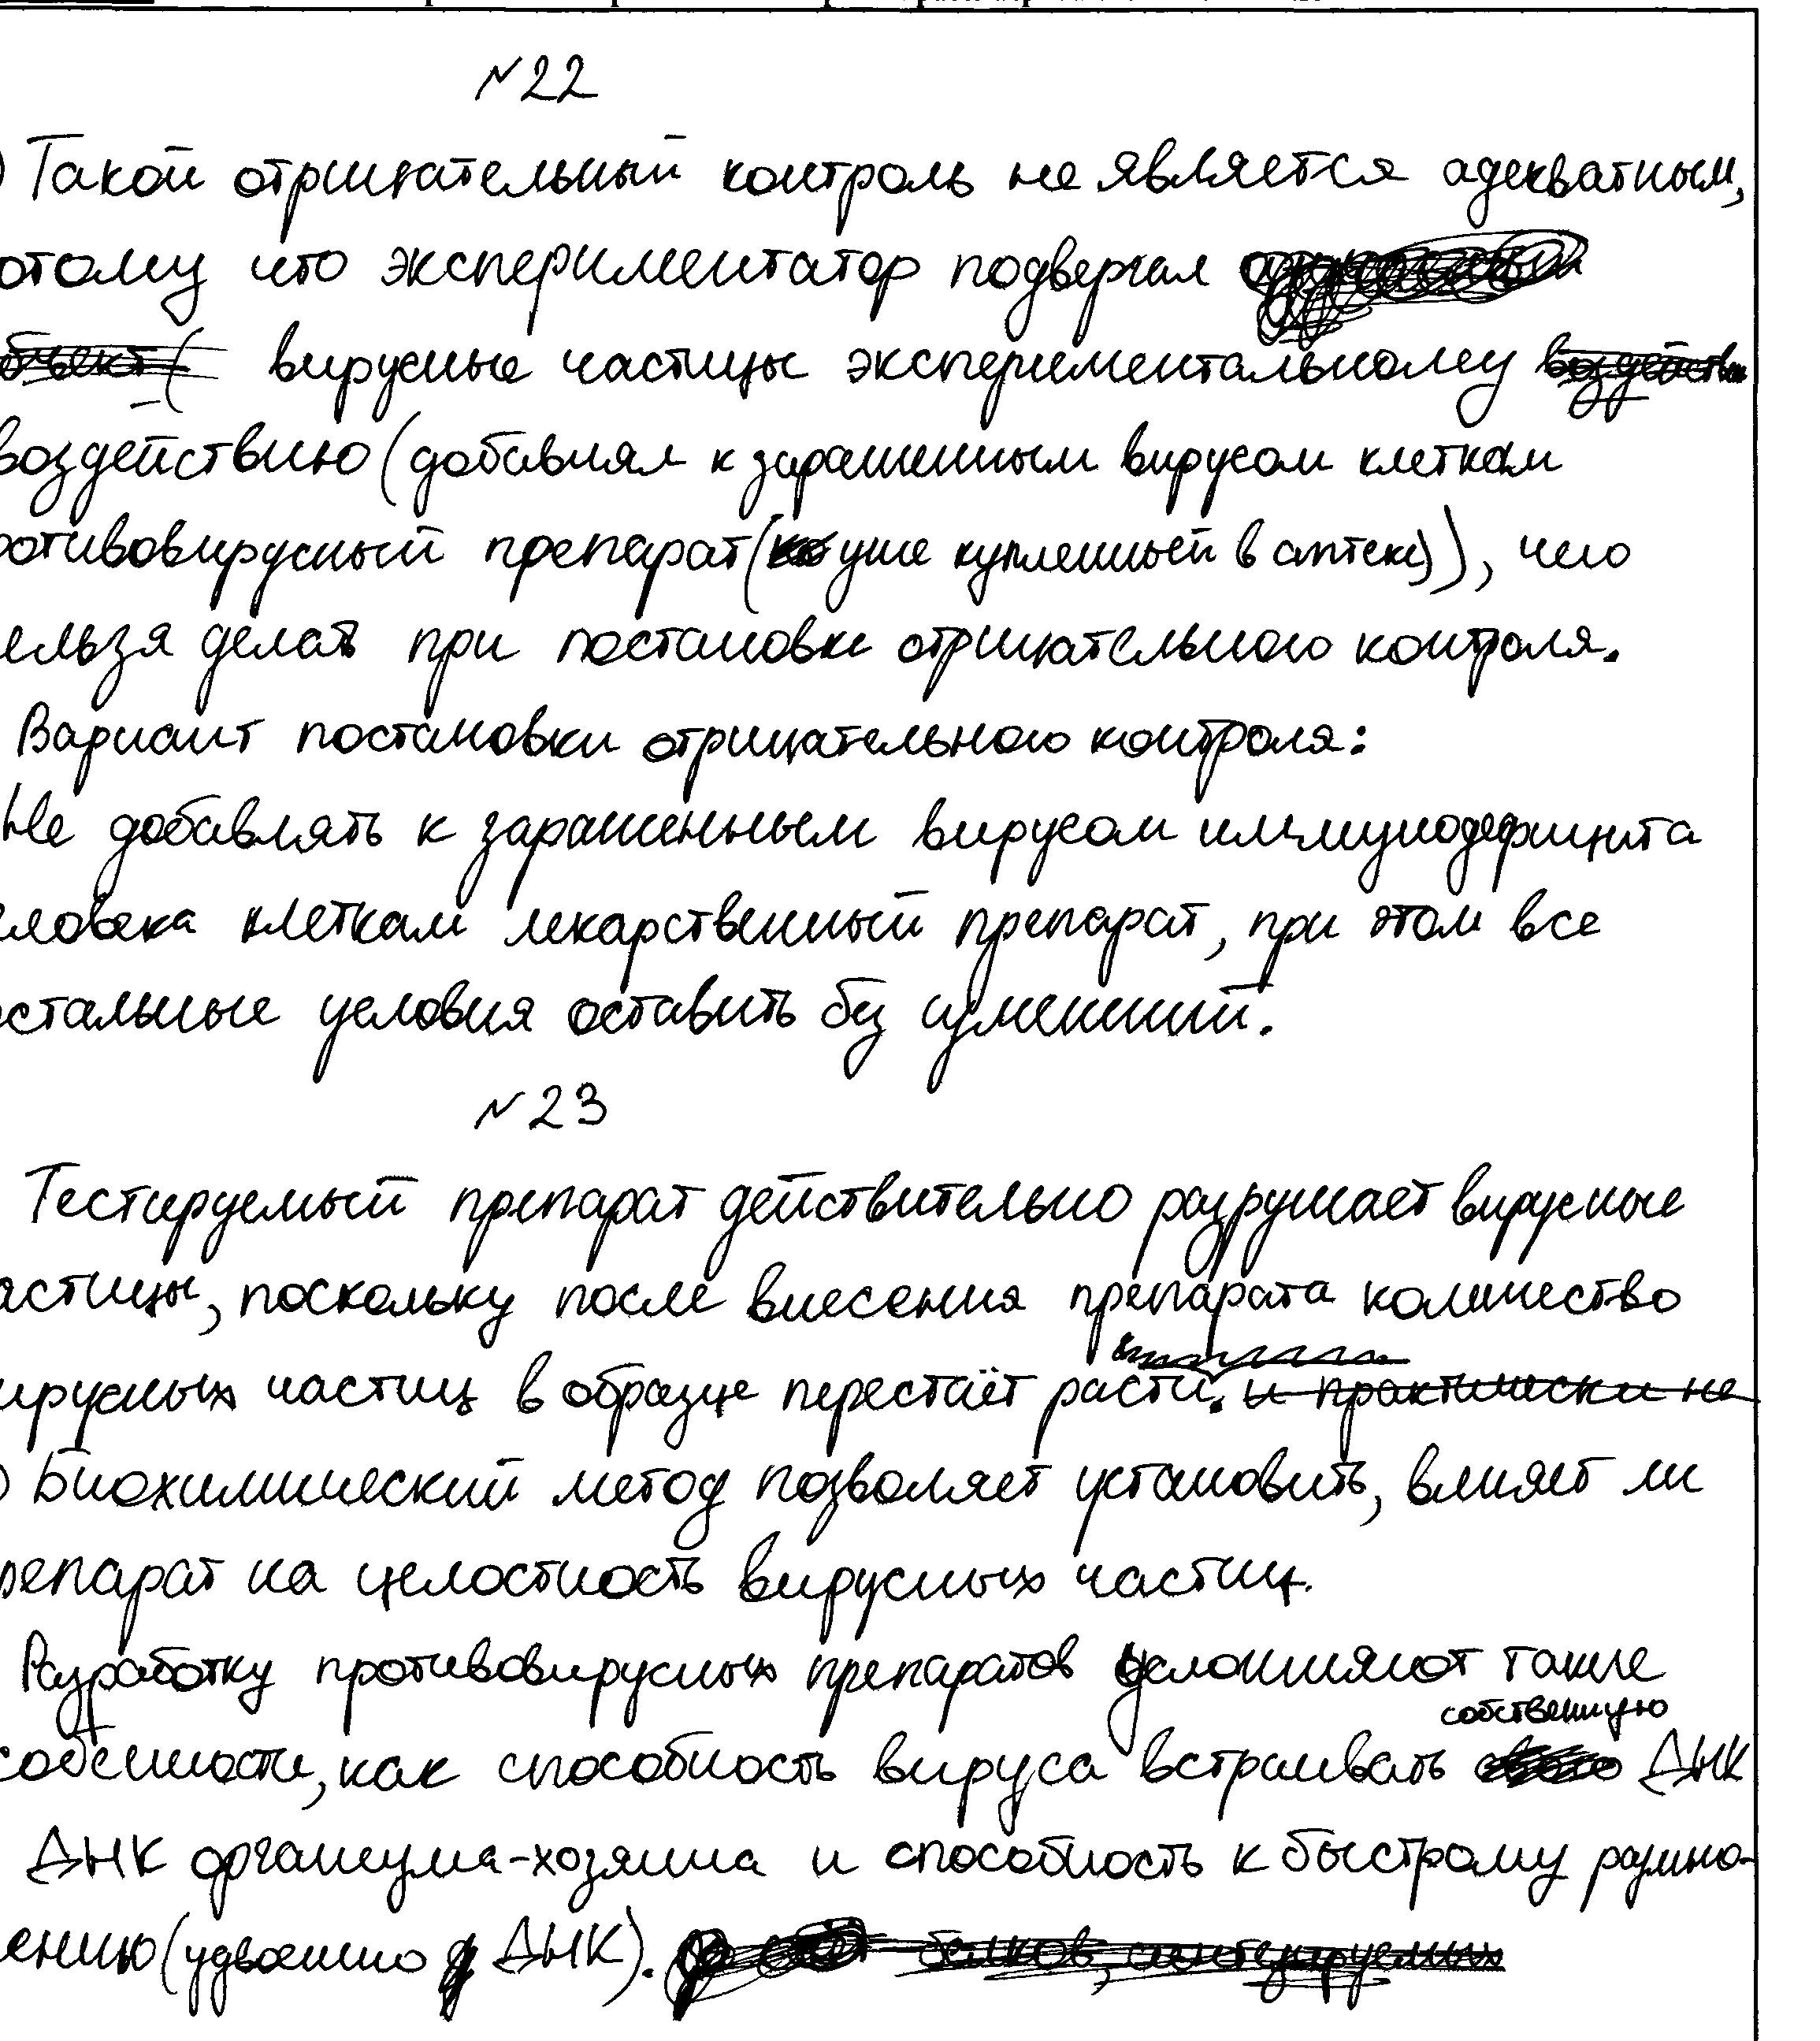 №22
) Такой отрицательный контроль не является адекватным,
отому что экспериментатор подвергал
объект ( вирусные частицы экспериментальному воздействи
воздействию (добавлял к зараженным вирусом клеткам
ротивовирусный препарат (уже купленный в аптеке)), чего
ельзя делать при постановке отрицательного контроля.
Вариант постановки отрицательного контроля:
Не добавлять к зараженным вирусом иммунодефицита
еловека клеткам лекарственный препарат, при этом все
остальные условия оставить без изменений.
№23
Тестируемый препарат действительно разрушает вирусные
астицы, поскольку после внесения препарата количество
ирусных частиц в образце перестаёт расти. и практически не
) Биохимический метод позволяет установить, влияет ли
репарат на целостность вирусных частиц.
Разработку противовирусных препаратов усложняют такие
собенности, как способность вируса встраивать собственную ДНК
ДНК организма-хозяина и способность к быстрому размно-
ению (удвоению ДНК). белков, синтезируемых